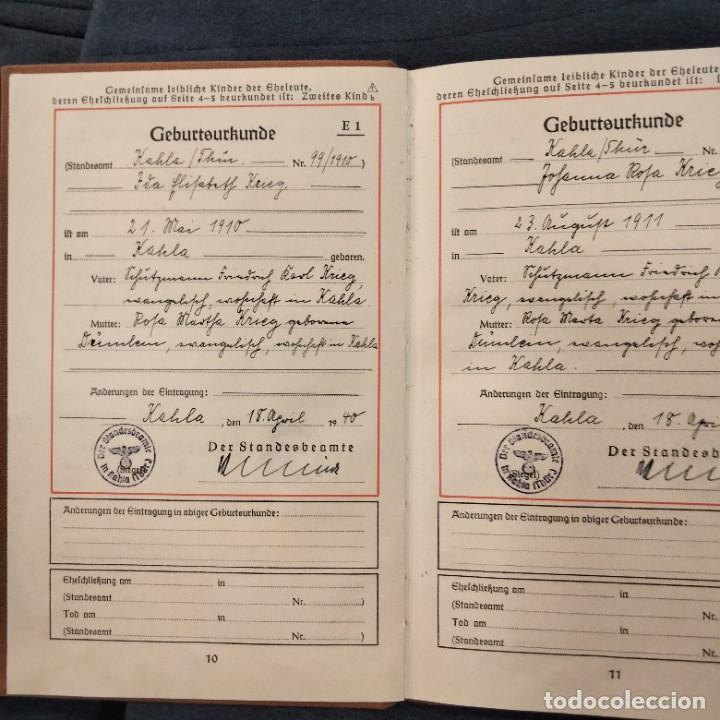 Gemeinsame leibliche Kinder der Eheleute,
deren Eheschließung auf Seite 4–5 beurkundet ist: Zweites Kind
b
E 1
Geburtsurkunde
(Standesamt Kahla/Thür. Nr. 99/1910)
Ida Elisabeth Krieg
ist am 21. Mai 1910
in Kahla geboren.
Vater: Schutzmann Friedrich Karl Krieg,
evangelisch, wohnhaft in Kahla.
Mutter: Rosa Martha Krieg geborene
Dümlein, evangelisch, wohnhaft in Kahla
Änderungen der Eintragung:
Kahla, den 18. April 1940
Der Standesbeamte
(Siegel)
Der Standesbeamte in Kahla (Thür.)
Änderungen der Eintragung in obiger Geburtsurkunde:
Eheschließung am in
(Standesamt Nr. )
Tod am in
(Standesamt Nr. )
10
Gemeinsame leibliche Kinder der Eheleute,
deren Eheschließung auf Seite 4–5 beurkundet ist:
Geburtsurkunde
(Standesamt Kahla/Thür.
Johanna Rosa Krie
ist am 23. August 1911
in Kahla
Vater: Schutzmann Friedrich
Krieg, evangelisch, wohnhaft in
Mutter: Rosa Marta Krieg gebore
Dümlein, evangelisch, wohn
in Kahla.
Änderungen der Eintragung:
Kahla, den 18. Apri
Der Standesbe
(Siegel)
Der Standesbeamte in Kahla (Thür.)
Änderungen der Eintragung in obiger Geburtsurkunde:
Eheschließung am in
(Standesamt Nr.
Tod am in
(Standesamt Nr.
11
todocoleccion